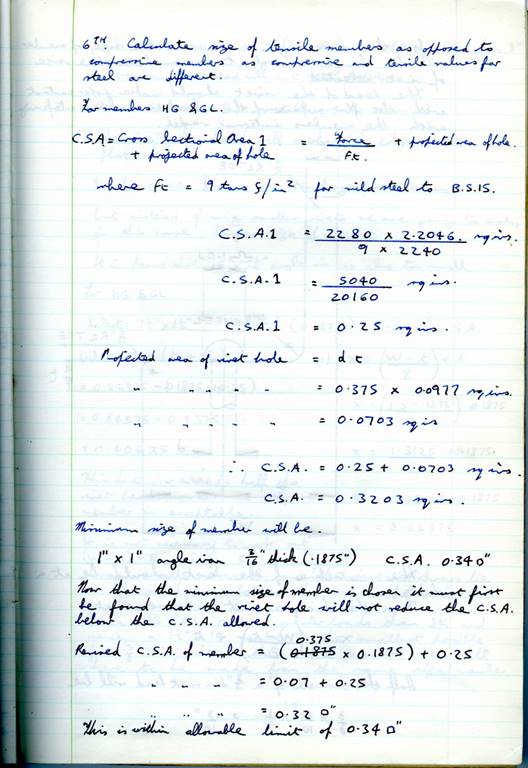 6TH. Calculate size of tensile members as opposed to
compressive members as compressive and tensile values for
steel are different.
For members HG & GL.
C.S.A = Cross Sectional Area 1 = Force + projected area of hole.
+ projected area of hole Ft.
where Ft = 9 tons f/in² for mild steel to B.S.15.
C.S.A.1 = 2280 x 2.2046. sq ins.
9 x 2240
C.S.A.1 = 5040 sq ins.
20160
C.S.A.1 = 0.25 sq ins.
Projected area of rivet hole = d t
" " " " = 0.375 x 0.0977 sq ins.
" " " " = 0.0703 sq ins
∴ C.S.A. = 0.25 + 0.0703 sq ins.
C.S.A. = 0.3203 sq ins.
Minimum size of member will be.
1" x 1" angle iron 3/16" thick (.1875") C.S.A. 0.34 □"
Now that the minimum size of member is chosen it must first
be found that the rivet hole will not reduce the C.S.A.
below the C.S.A. allowed.
0.375
Revised C.S.A. of member = (0.1875 x 0.1875) + 0.25
" " " = 0.07 + 0.25
" " " = 0.32 □"
This is within allowable limit of 0.34 □"